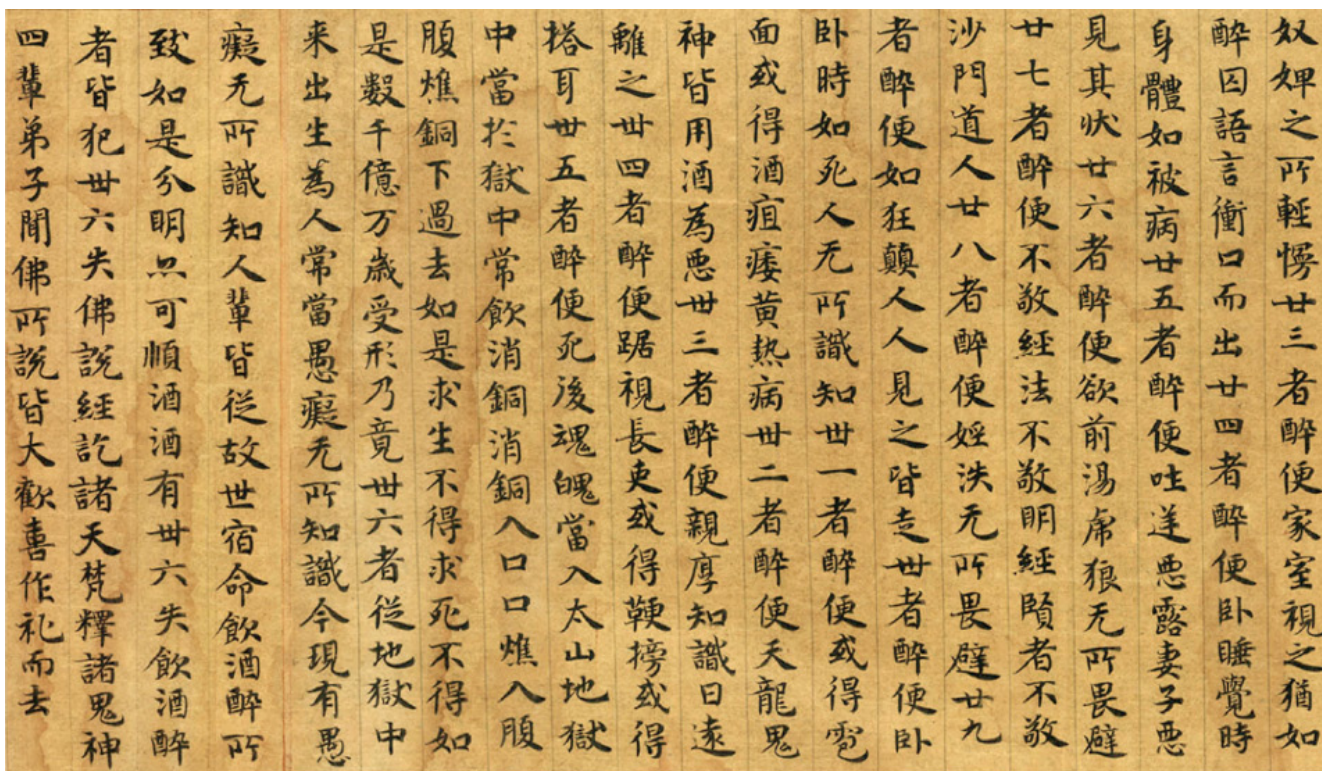 奴婢之所輕愕廿三者醉便家室視之猶如
醉囚語言衝口而出廿四者醉便卧睡覺時
身體如被病廿五者醉便吐逆惡露妻子惡
見其状廿六者醉便欲前湯席狼无所畏避
廿七者醉便不敬經法不敬明經賢者不敬
沙門道人廿八者醉便婬泆无所畏避廿九
者醉便如狂顛人人見之皆走卅者醉便卧
卧時如死人无所識知卅一者醉便或得皰
面或得酒疽痿黄热病卅二者醉便天龍鬼
神皆用酒為惡卅三者醉便親厚知識日遠
離之卅四者醉便踞視長吏或得鞕搒或得
搭耳卅五者醉便死後魂魄當入太山地獄
中當於獄中常飲消銅消銅入口口燋入腹
腹燋銅下過去如是求生不得求死不得如
是數千億万歲受形乃竟卅六者從地獄中
来出生為人常當愚癡无所知識今現有愚
癡无所識知人輩皆從故世宿命飲酒醉所
致如是分明亦可順酒酒有卅六失飲酒醉
者皆犯卅六失佛說經訖諸天梵釋諸鬼神
四輩弟子聞佛所說皆大歡喜作礼而去